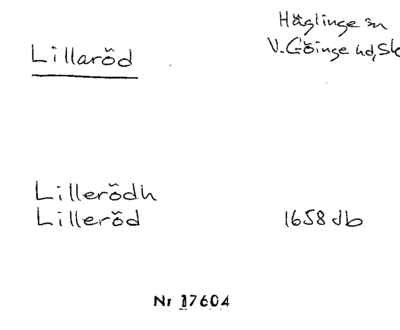 Lillaröd
Häglinge sn
V. Göinge hd, Sk
Lillerödh
Lilleröd 1658 Jb
Nr 17604